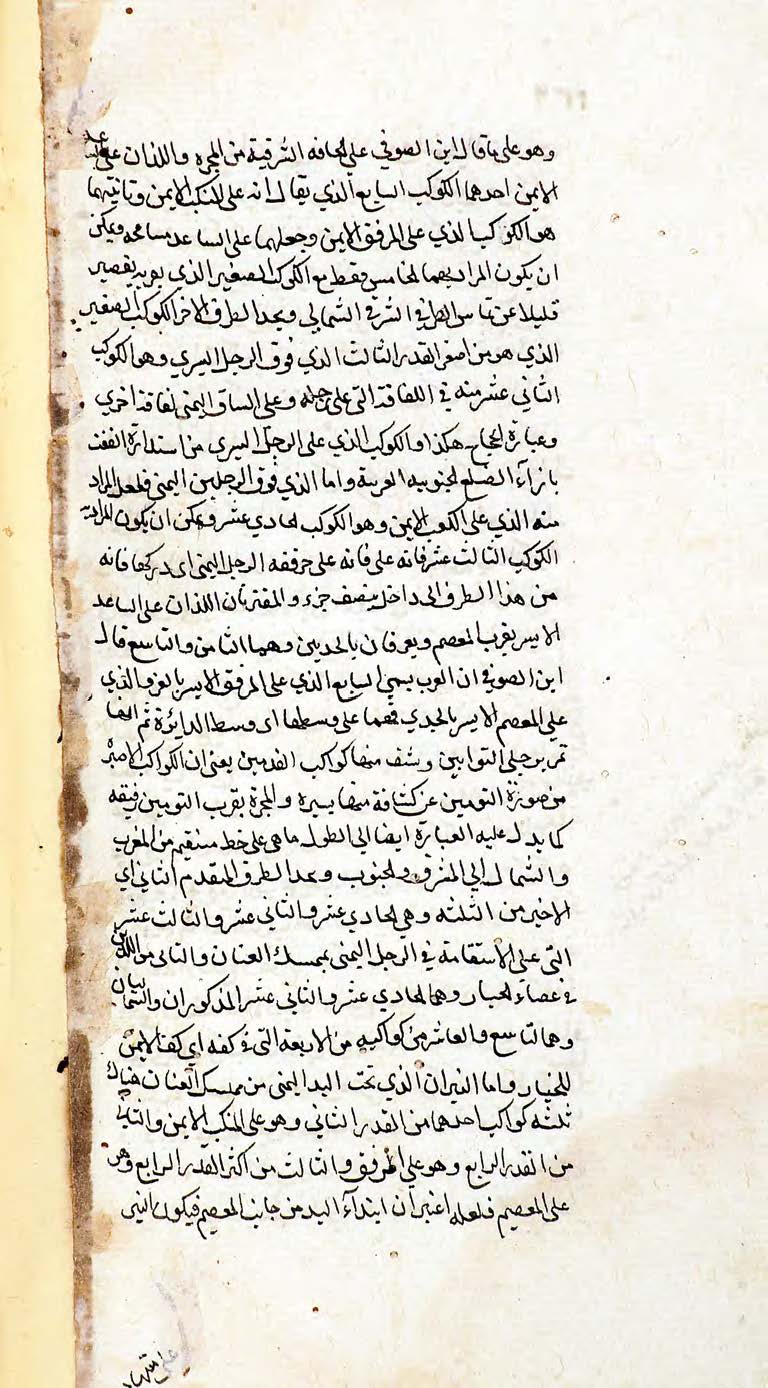 وهو على ما قال ابن الصوفي على الحافة الشرقية من المجره واللذان على الساعد
الايمن احدهما الكوكب السابع الذي يقال انه على المنكب الايمن وثانيتهما
هو الكوكب الذي على المرفق الايمن وجعلهما على الساعد مسامحه ويمكن
ان يكون المراد بهما الخامس فقط مع الكوكب الصغير الذي بقربه يقصر
قليلا عن تماس الطرفي الشرقي الشمالي ويحد الطرف الاخر الكوكب الصغير
الذي هو من اصغر القدر الثالث الذي فوق الرجل اليسري وهو الكوكب
الثاني عشر منه في اللفافة التي على رجله وعلى الساق اليمنى لفافة اخري
وعبارة الحجاج هكذا والكوكب الذي على الرجل اليسري من استدارة التفت
بازآء الضلع الجنوبيه الغربية واما الذي فوق الرجلين اليمنى فلعل المراد
منه الذي على الكعب الايمن وهو الكوكب الحادي عشر ويمكن ان يكون المراد به
الكوكب الثالث عشر فانه على فانه على حرقفه الرجل اليمنى اى فانه
من هذا الطرف الى داخل بنصف جزء والمقتربان اللذان على الساعد
الايسر بقرب المعصم ويعرفان بالجديين وهما الثامن والتاسع قال
ابن الصوفي ان العرب يسمي السابع الذي على المرفق الايسر بالعز والذي
على المعصم الايسر بالجدي فهما على وسطها اى وسط الدائرة ثم ايضا
تمر برجلي التوامين وشف منها كواكب القدمين يعنى ان الكواكب الاخيرة
من صورة التومين عن كثافة منها يسيره والمجرة بقرب التومين
كما يدل عليه العبارة ايضا الى الطول ما هى على خط مستقيم من المغرب
والشمال الى المشرق والجنوب ويحد الطرف المتقدم الثاني اي
الاخير من الثلثه وهى الحادي عشر والثاني عشر والثالث عشر
التى على الاستقامة في الرجل اليمنى بممسك العنان والتالى من اللذين
في عصاء الجبار وهما الحادي عشر والثاني عشر المذكوران والشماليان
وهما التاسع والعاشر من كواكبه من الاربعة التى في كفه اي كفه الايمن
للجبار واما النيران الذي تحت اليد اليمنى من ممسك العنان هناك
ثلثه كواكب احدهما من القدر الثاني وهو على المنكب الايمن والثاني
من القدر الرابع وهو على المرفق والثالث من اكثر القدر الرابع وهو
على المعصم فلعله اعتبر ان ابتدآء اليد من جانب المعصم فيكون النير